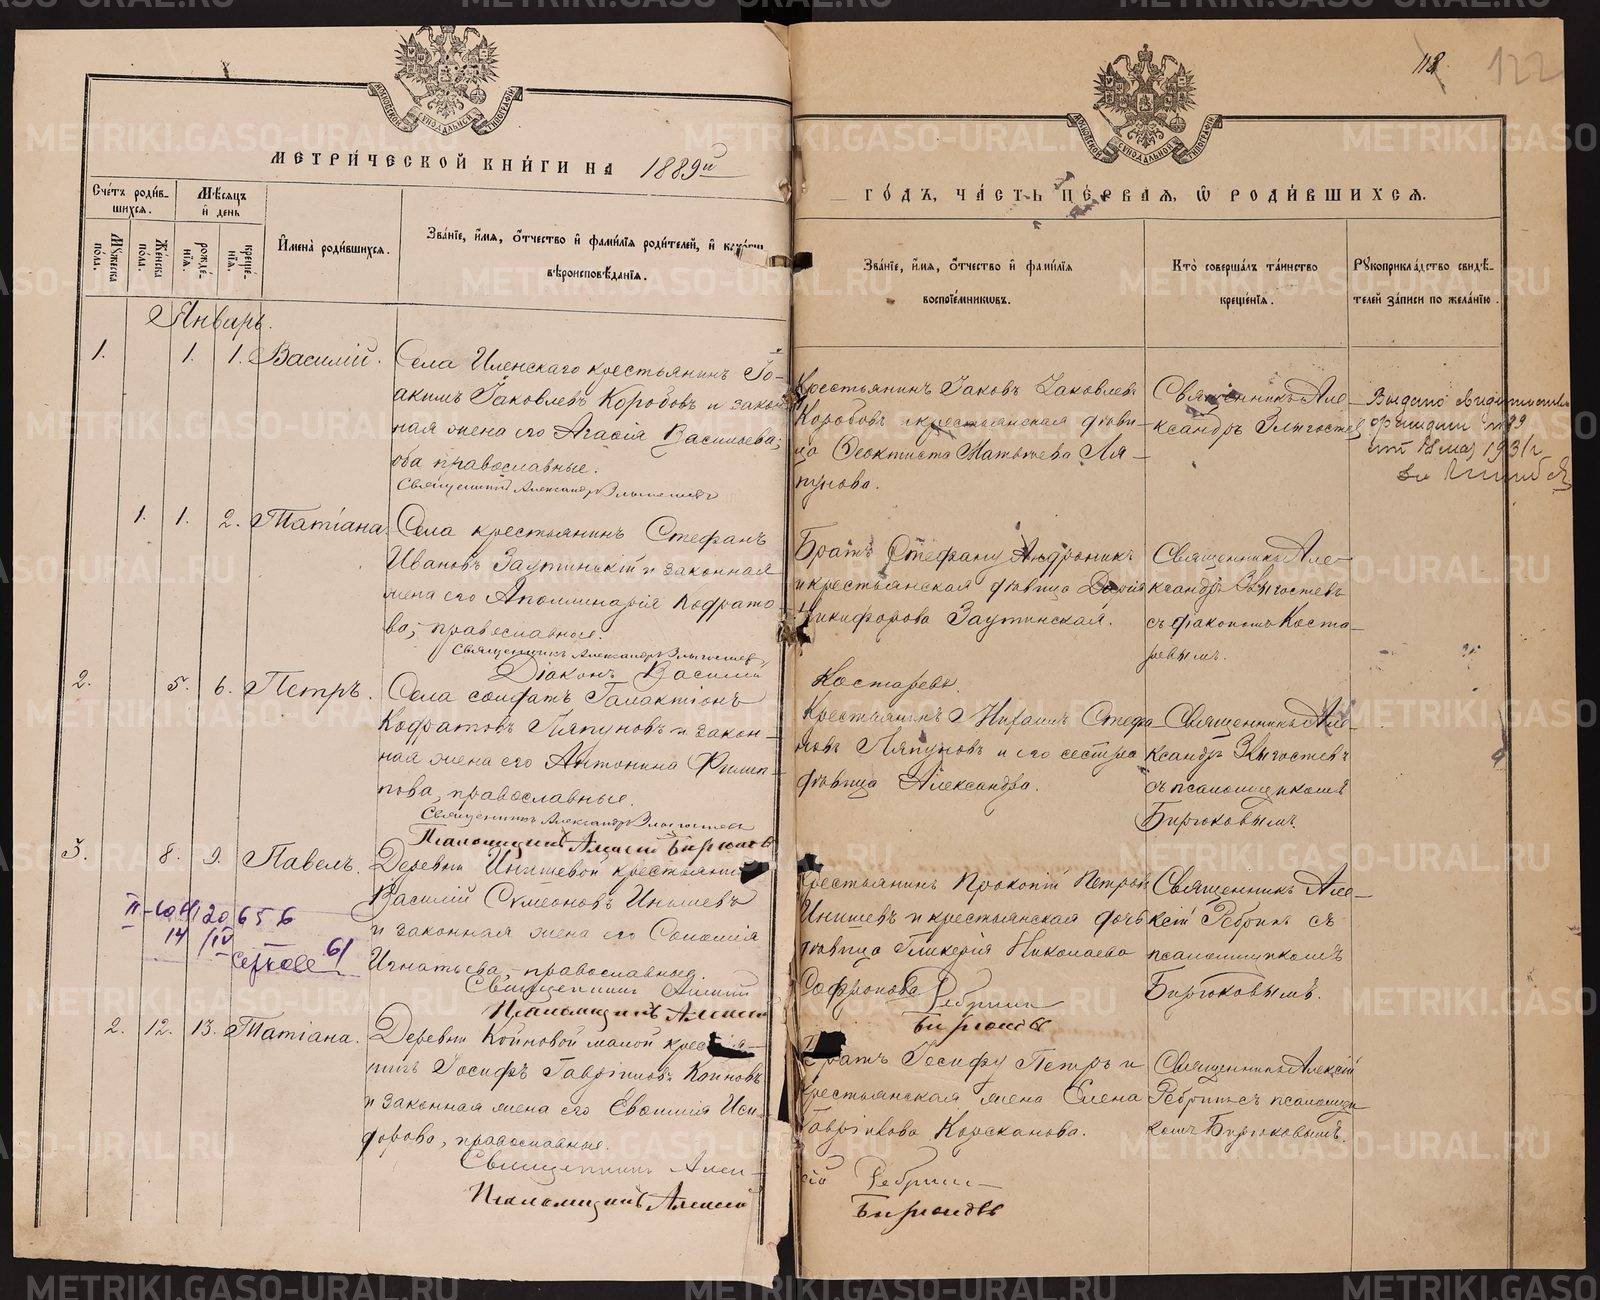 МЕТРИЧЕСКОЙ КНИГИ НА 1889й
Счетъ родив-
шихся.
Мѣсяцъ
и день
Мужеска
пола.
Женска
пола.
рожде-
нія.
креще-
нія.
Имена родившихся.
Званіе, имя, отчество и фамилія родителей, и
вѣроисповѣданія.
Январь.
1. 1. 1. Василій.
Села Иленскаго крестьянинъ Іо-
акимъ Іаковлевъ Коробовъ и закон
ная жена его Агасія Васильева;
оба православные.
Священникъ Александръ Злыгостевъ
1. 1. 2. Татіана.
Села крестьянинъ Стефанъ
Ивановъ Заутинскій и законная
жена его Аполлинарія Кодрато-
ва, православные.
Священникъ Александръ Злыгостевъ
Діаконъ Василій
2. 5. 6. Петръ.
Села солдатъ Галактіонъ
Кодратовъ Ляпуновъ и закон-
ная жена его Антонина Филип-
пова, православные.
Священникъ Александръ Злыгостевъ
Псаломщикъ Алексій Бирюковъ
3. 8. 9. Павелъ.
Деревни Инишевой крестьянинъ
Василій Сумеоновъ Инишевъ
и законная жена его Соломія
Игнатьева, православные.
Священникъ Алексій
Псаломщикъ Алексій
2. 12. 13. Татіана.
Деревни Койновой малой крестья-
нинъ Іосифъ Гавріиловъ Койновъ
и законная жена его Евдокія Иси-
дорова, православные.
Священникъ Алек-
Псаломщикъ Алексій
118
122
ГОДЪ, ЧАСТЬ ПЕРВАЯ, Ѡ РОДИВШИХСЯ.
Званіе, имя, отчество и фамилія
воспріемниковъ.
Кто совершалъ таинство
крещенія.
Рукоприкладство свидѣ-
телей записи по желанію.
Крестьянинъ Іаковъ Іаковлевъ
Коробовъ и крестьянская дѣви-
ца Феоктиста Матвѣева Ля-
пунова.
Священникъ Але-
ксандръ Злыгостевъ
Выдано
1931 г
Братъ Стефану Андроникъ
и крестьянская дѣвица Дарія
Никифорова Заутинская.
Священникъ Але-
ксандръ Злыгостевъ
съ діакономъ Коста-
ревымъ.
Костаревъ.
Крестьянинъ Михаилъ Стефа-
новъ Ляпуновъ и его сестра
дѣвица Александра.
Священникъ Але-
ксандръ Злыгостевъ
съ псаломщикомъ
Бирюковымъ.
Крестьянинъ Прокопій Петровъ
Инишевъ и крестьянская дочь
дѣвица Гликерія Николаева
Сафронова
Ребринъ
Бирюковъ
Священникъ Але-
ксій Ребринъ съ
псаломщикомъ
Бирюковымъ.
Братъ Іосифу Петръ и
крестьянская жена Елена
Гавріилова Корсканова.
Священникъ Алексій
Ребринъ съ псаломщи-
комъ Бирюковымъ.
сій Ребринъ
Бирюковъ
METRIKI.GASO-URAL.RU